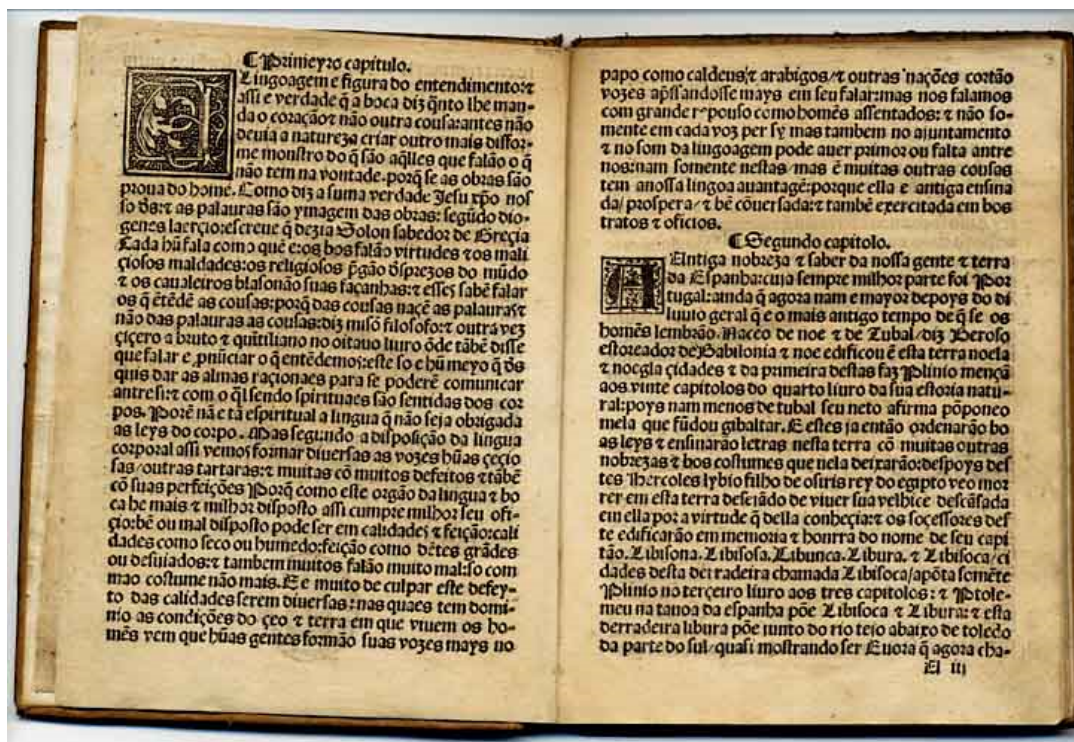 ¶ Primeyro capitulo.
Lingoagem e figura do entendimento:⁊
assi e verdade q̃ a boca diz q̃nto lhe man-
da o coração⁊ não outra cousa:antes não
deuia a natureza criar outro mais diffor-
me monstro do q̃ são aq̃lles que falão o q̃
não tem na vontade.porq̃ se as obras são
proua do home. Como diz a suma verdade Jesu xp̃o nos
so d̃s:⁊ as palauras são ymagem das obras: segũdo dio-
genes laerçio:escreue q̃ dezia Solon sabedor de Greçia
Cada hũ fala como quẽ e:os bos falão virtudes ⁊os mali
çiosos maldades:os religiosos p̃gão d̃sprezos do mũdo
⁊ os caualeiros blasonão suas façanhas:⁊ esses sabẽ falar
os q̃ ẽtẽdẽ as cousas:porq̃ das cousas naçẽ as palauras⁊
não das palauras as cousas:diz misõ filosofo:⁊ outra vez
çiçero a bruto ⁊ quĩtiliano no oitauo liuro õde tãbẽ disse
que falar e ꝓnũciar o q̃ entẽdemos:este so e hũ meyo q̃ d̃s
quis dar as almas raçionaes para se poderẽ comunicar
antre si:⁊ com o q̃l sendo spirituaes são sentidas dos cor
pos. Porẽ nã e tã espiritual a lingua q̃ não seja obrigada
as leys do corpo. Mas segundo a disposição da lingua
corporal assi vemos formar diuersas as vozes hũas çeçio
sas/outras tartaras:⁊ muitas cõ muitos defeitos ⁊tãbẽ
cõ suas perfeições Porq̃ como este orgão da lingua ⁊ bo
ca he mais ⁊ milhor disposto assi cumpre milhor seu ofi-
çio:bẽ ou mal disposto pode ser em calidades ⁊ feição:cali
dades como seco ou humedo:feição como dẽtes grãdes
ou desuiados:⁊ tambem muitos falão muito mal:so com
mao costume não mais. E e muito de culpar este defey-
to das calidades serem diuersas:nas quaes tem domi-
nio as condições do çeo ⁊ terra em que viuem os ho-
mẽs vem que hũas gentes formão suas vozes mays no
papo como caldeus⁊ arabigos/⁊ outras nações cortão
vozes ap̃ssandosse mays em seu falar:mas nos falamos
com grande repouso como homẽs assentados: ⁊ não so-
mente em cada voz per sy mas tambem no ajuntamento
⁊ no som da lingoagem pode auer primor ou falta antre
nos:nam somente nestas/mas ẽ muitas outras cousas
tem anossa lingoa auantagẽ:porque ella e antiga ensina
da/prospera/⁊ bẽ cõuersada:⁊ tambẽ exercitada em bos
tratos ⁊ oficios.
¶ Segundo capitolo.
Antiga nobreza ⁊ saber da nossa gente ⁊ terra
da Espanha:cuja sempre milhor parte foi Por
tugal:ainda q̃ agora nam e mayor depoys do di
luuio geral q̃ e o mais antigo tempo de q̃ se os
homẽs lembrão. Naceo de noe ⁊ de Tubal/diz Beroso
estoreador de Babilonia ⁊ noe edificou ẽ esta terra noela
⁊ noegla çidades ⁊ da primeira destas faz Plinio mençã
aos vinte capitolos do quarto liuro da sua estoria natu-
ral:poys nam menos de tubal seu neto afirma põponeo
mela que fũdou gibaltar. E estes ja então ordenarão bo
as leys ⁊ ensinarão letras nesta terra cõ muitas outras
nobrezas ⁊ bos costumes que nela deixarão:despoys des
tes Hercoles lybio filho de osiris rey do egipto veo mor
rer em esta terra desejãdo de viuer sua velhice descãsada
em ella por a virtude q̃ della conheçia:⁊ os soçessores des
te edificarão em memoria ⁊ honrra do nome de seu capi
tão. Libisona. Libisosa. Libunca. Libura. ⁊ Libisoca/ci
dades desta derradeira chamada Libisoca/apõta somẽte
Plinio no terçeiro liuro aos tres capitolos: ⁊ Ptole-
meu na tauoa da espanha põe Libisoca ⁊ Libura:⁊ esta
derradeira libura põe junto do rio tejo abaixo de toledo
da parte do sul/quasi mostrando ser Euora q̃ agora cha-
A iij